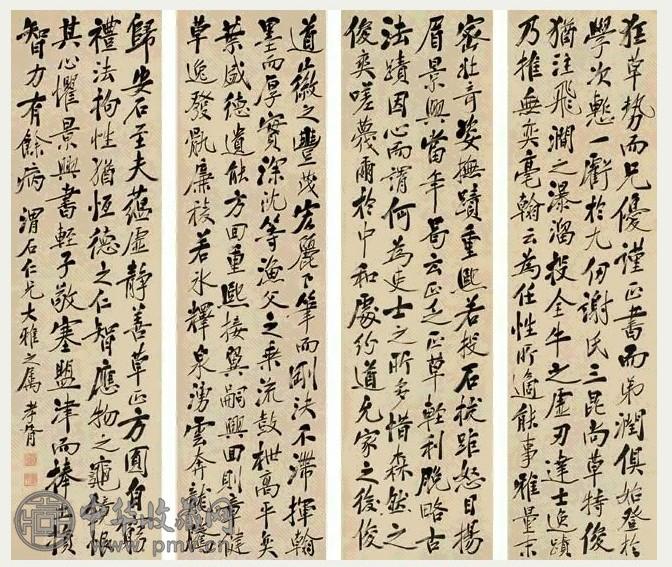 狂草勢而兄優謹正書而弟潤俱始登於
學次慙一虧於九仞謝氏三昆尚草特俊
猶注飛澗之瀑溜投全牛之虛刃達士逸蹟
乃推無奕毫翰云為任性所適能事雅量末
密壯奇姿撫蹟重熙若投石拔距怒目揚
眉景興當年曷云正乏正草輕利脫略古
法蹟因心而謂何為吏士之所多惜森然之
俊爽嗟蔑爾於中和處約道允家之後俊
道之豐茂宏麗下筆而剛決不滯揮翰
墨而厚實深沈等漁父之乘流鼓枻高平奕
葉盛德遺能方回重熙接翼嗣興回則章健
草逸發厲廉稜若冰釋泉湧雲奔龍騰
歸安石至夫蘊虛靜善草正方圓自窮
禮法拘性猶恒德之仁智應物之龜鏡恨
其心懼景興書輕子敬塞盟津而捧土損
智力有餘病 渭石仁兄大雅之屬 孝胥
中华收藏网
www.pmr.cn